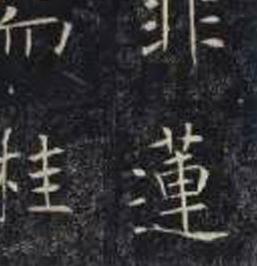 非蓮
而桂